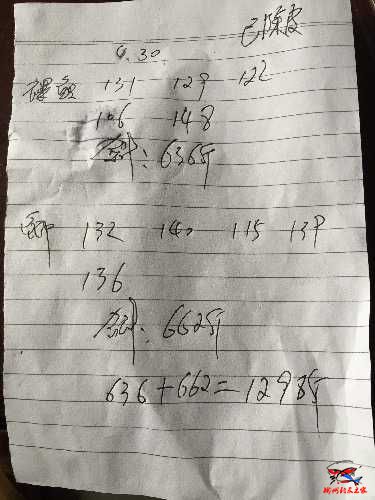 已除皮
4.30.
131 129 122
106 148
合计:636斤
132 140 115 139
136
合计:662斤
636+662=1298斤
钓友之家